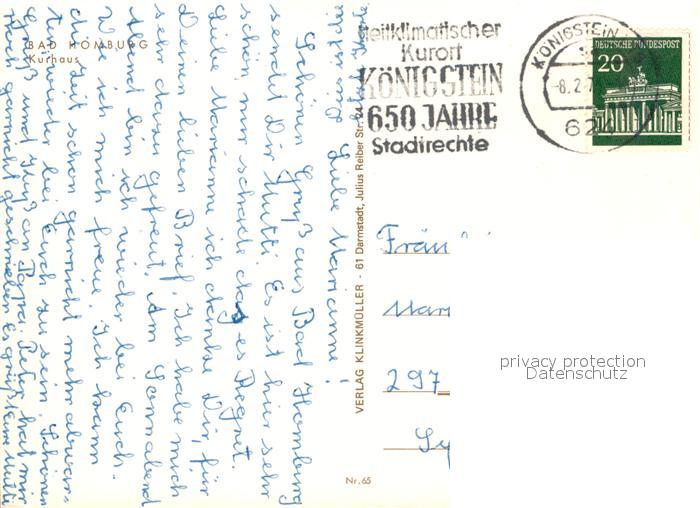 BAD HOMBURG
Kurhaus
Heilklimatischer
Kurort
KÖNIGSTEIN
650 JAHRE
Stadtrechte
KÖNIGSTEIN
-8.2.7
624
DEUTSCHE BUNDESPOST
20
VERLAG KLINKMÜLLER · 61 Darmstadt, Julius Reiber Str. 24
Nr. 65
Liebe Marianne!
Schönen Gruß aus Bad Homburg
sendet Dir Mutti. Es ist hier sehr
schön nur schade das es Regnet.
Liebe Marianne ich danke Dir, für
Dein lieben Brief, Ich habe mich
sehr dazu gefreut. Am Sonnabend
Abend bin ich wieder bei Euch.
Was ich mich freue, Ich kann
die Zeit schon garnicht mehr abwar-
ten wieder bei Euch zu sein. Schönen
Gruß und Kuß an Papa, Peter, hat mir
noch garnicht geschrieben es grüßt Eure Mutti
Fräu
Mar
297
privacy protection
Datenschutz